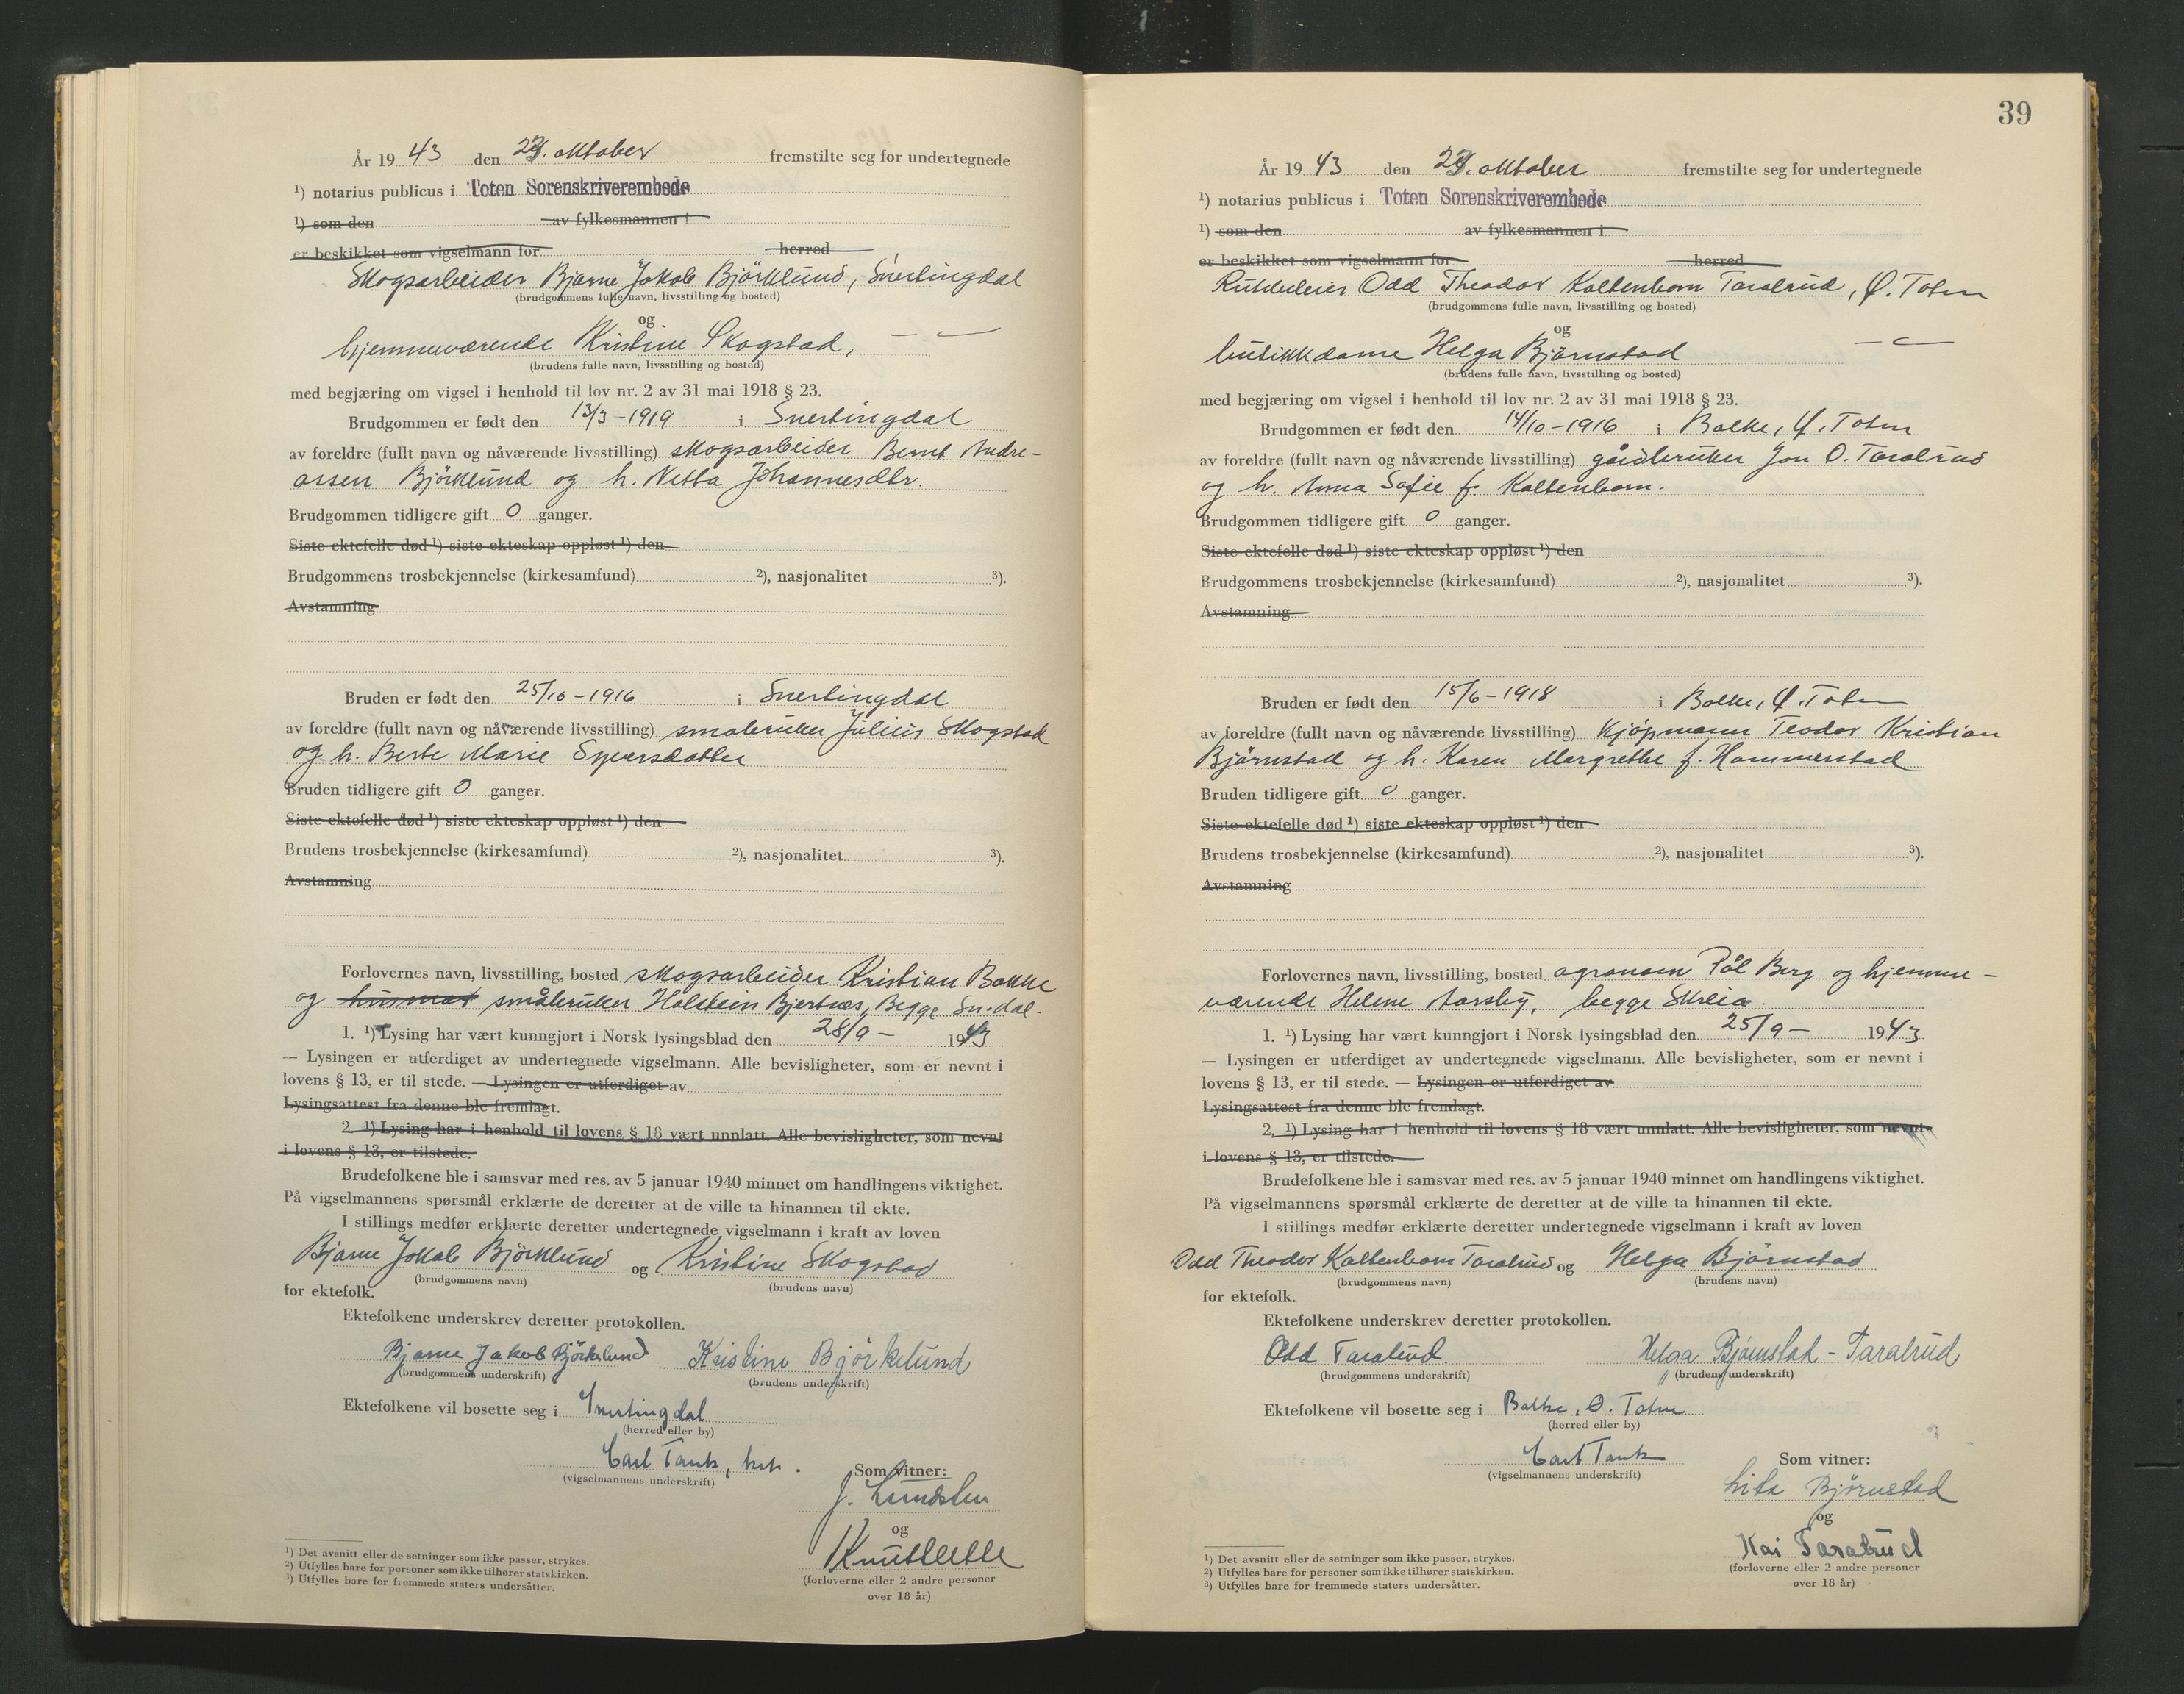 År 1943 den 23. oktober fremstilte seg for undertegnede
¹) notarius publicus i Toten Sorenskriverembede
¹) som den av fylkesmannen i
er beskikket som vigselmann for herred
Skogsarbeider Bjarne Jakob Björklund, Snertingdal
(brudgommens fulle navn, livsstilling og bosted)
og
hjemmeværende Kristine Skogstad, — " —
(brudens fulle navn, livsstilling og bosted)
med begjæring om vigsel i henhold til lov nr. 2 av 31 mai 1918 § 23.
Brudgommen er født den 13/3-1919 i Snertingdal
av foreldre (fullt navn og nåværende livsstilling) skogsarbeider Bernt Andre-
assen Björklund og h. Netta Johannesdtr.
Brudgommen tidligere gift 0 ganger.
Siste ektefelle død ¹) siste ekteskap oppløst ¹) den
Brudgommens trosbekjennelse (kirkesamfund) ²), nasjonalitet ³).
Avstamning
Bruden er født den 25/10-1916 i Snertingdal
av foreldre (fullt navn og nåværende livsstilling) småbruker Julius Skogstad
og h. Berte Marie Syversdatter
Bruden tidligere gift 0 ganger.
Siste ektefelle død ¹) siste ekteskap oppløst ¹) den
Brudens trosbekjennelse (kirkesamfund) ²), nasjonalitet ³).
Avstamning
Forlovernes navn, livsstilling, bosted skogsarbeider Kristian Bakke
og småbruker Holstein Bjertnes, Begge Sn.dal.
1. ¹) Lysing har vært kunngjort i Norsk lysingsblad den 28/9 - 1943
— Lysingen er utferdiget av undertegnede vigselmann. Alle bevisligheter, som er nevnt i
lovens § 13, er til stede. — Lysingen er utferdiget av
Lysingsattest fra denne ble fremlagt.
2. ¹) Lysing har i henhold til lovens § 18 vært unnlatt. Alle bevisligheter, som nevnt
i lovens § 13, er tilstede.
Brudefolkene ble i samsvar med res. av 5 januar 1940 minnet om handlingens viktighet.
På vigselmannens spørsmål erklærte de deretter at de ville ta hinannen til ekte.
I stillings medfør erklærte deretter undertegnede vigselmann i kraft av loven
Bjarne Jakob Björklund og Kristine Skogstad
(brudgommens navn) (brudens navn)
for ektefolk.
Ektefolkene underskrev deretter protokollen.
Bjarne Jakob Björkelund Kristine Björkelund
(brudgommens underskrift) (brudens underskrift)
Ektefolkene vil bosette seg i Snertingdal
(herred eller by)
Carl Tank,
(vigselmannens underskrift)
Som vitner:
J. Lundsten
og
(forloverne eller 2 andre personer
over 18 år)
¹) Det avsnitt eller de setninger som ikke passer, strykes.
²) Utfylles bare for personer som ikke tilhører statskirken.
³) Utfylles bare for fremmede staters undersåtter.
39
År 1943 den 23. oktober fremstilte seg for undertegnede
¹) notarius publicus i Toten Sorenskriverembede
¹) som den av fylkesmannen i
er beskikket som vigselmann for herred
Rutebileier Odd Theodor Koltenborn Taralrud, Ø. Toten
(brudgommens fulle navn, livsstilling og bosted)
og
butikkdame Helga Bjørnstad — " —
(brudens fulle navn, livsstilling og bosted)
med begjæring om vigsel i henhold til lov nr. 2 av 31 mai 1918 § 23.
Brudgommen er født den 14/10-1916 i Balke, Ø. Toten
av foreldre (fullt navn og nåværende livsstilling) gårdbruker Jon O. Taralrud
og h. Anna Sofie f. Koltenborn.
Brudgommen tidligere gift 0 ganger.
Siste ektefelle død ¹) siste ekteskap oppløst ¹) den
Brudgommens trosbekjennelse (kirkesamfund) ²), nasjonalitet ³).
Avstamning
Bruden er født den 15/6-1918 i Balke, Ø. Toten
av foreldre (fullt navn og nåværende livsstilling) Kjöpmann Teodor Kristian
Bjørnstad og h. Karen Margrethe f. Hammerstad
Bruden tidligere gift 0 ganger.
Siste ektefelle død ¹) siste ekteskap oppløst ¹) den
Brudens trosbekjennelse (kirkesamfund) ²), nasjonalitet ³).
Avstamning
Forlovernes navn, livsstilling, bosted agronom Pål Berg og hjemme-
værende Helene Aarsby, begge Skreia.
1. ¹) Lysing har vært kunngjort i Norsk lysingsblad den 25/9 - 1943
— Lysingen er utferdiget av undertegnede vigselmann. Alle bevisligheter, som er nevnt i
lovens § 13, er til stede. — Lysingen er utferdiget av
Lysingsattest fra denne ble fremlagt.
2. ¹) Lysing har i henhold til lovens § 18 vært unnlatt. Alle bevisligheter, som nevnt
i lovens § 13, er tilstede.
Brudefolkene ble i samsvar med res. av 5 januar 1940 minnet om handlingens viktighet.
På vigselmannens spørsmål erklærte de deretter at de ville ta hinannen til ekte.
I stillings medfør erklærte deretter undertegnede vigselmann i kraft av loven
Odd Theodor Koltenborn Taralrud og Helga Bjørnstad
(brudgommens navn) (brudens navn)
for ektefolk.
Ektefolkene underskrev deretter protokollen.
Odd Taralrud. Helga Bjørnstad - Taralrud
(brudgommens underskrift) (brudens underskrift)
Ektefolkene vil bosette seg i Balke, Ø. Toten
(herred eller by)
Carl Tank
(vigselmannens underskrift)
Som vitner:
Lita Bjørnstad
og
Kai Taralrud
(forloverne eller 2 andre personer
over 18 år)
¹) Det avsnitt eller de setninger som ikke passer, strykes.
²) Utfylles bare for personer som ikke tilhører statskirken.
³) Utfylles bare for fremmede staters undersåtter.